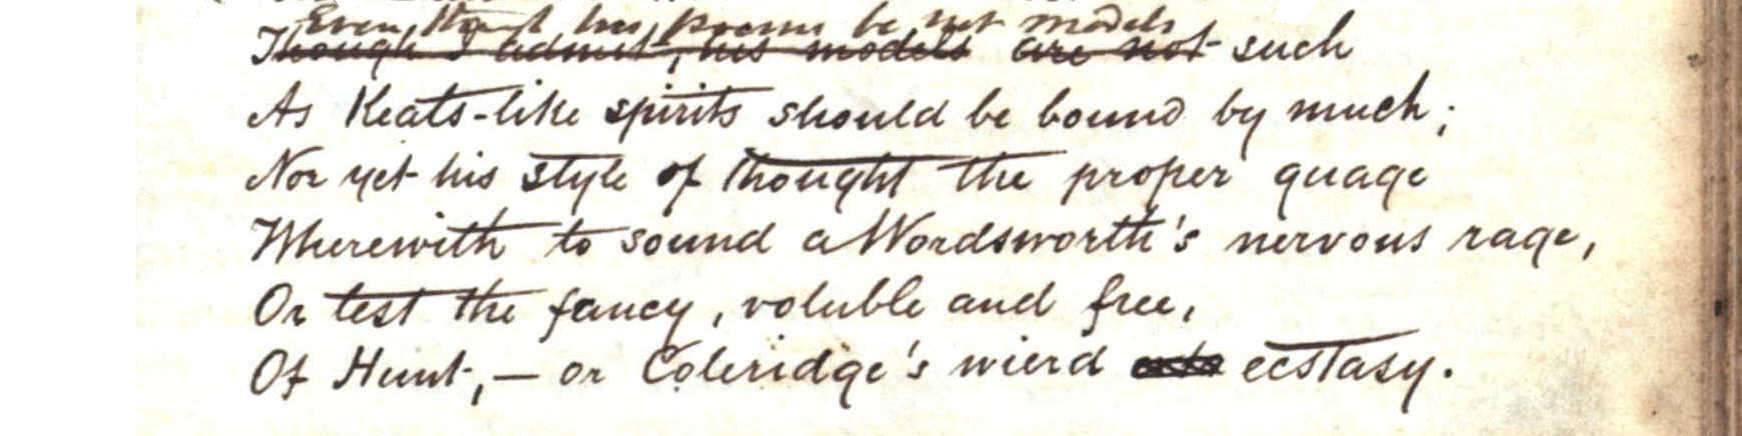 Even though his poems be not models
Though I admit, his models are not such
As Keats-like spirits should be bound by much;
Nor yet his style of thought the proper guage
Wherewith to sound a Wordsworth's nervous rage,
Or test the fancy, voluble and free,
Of Hunt, — or Coleridge's wierd ecstasy.